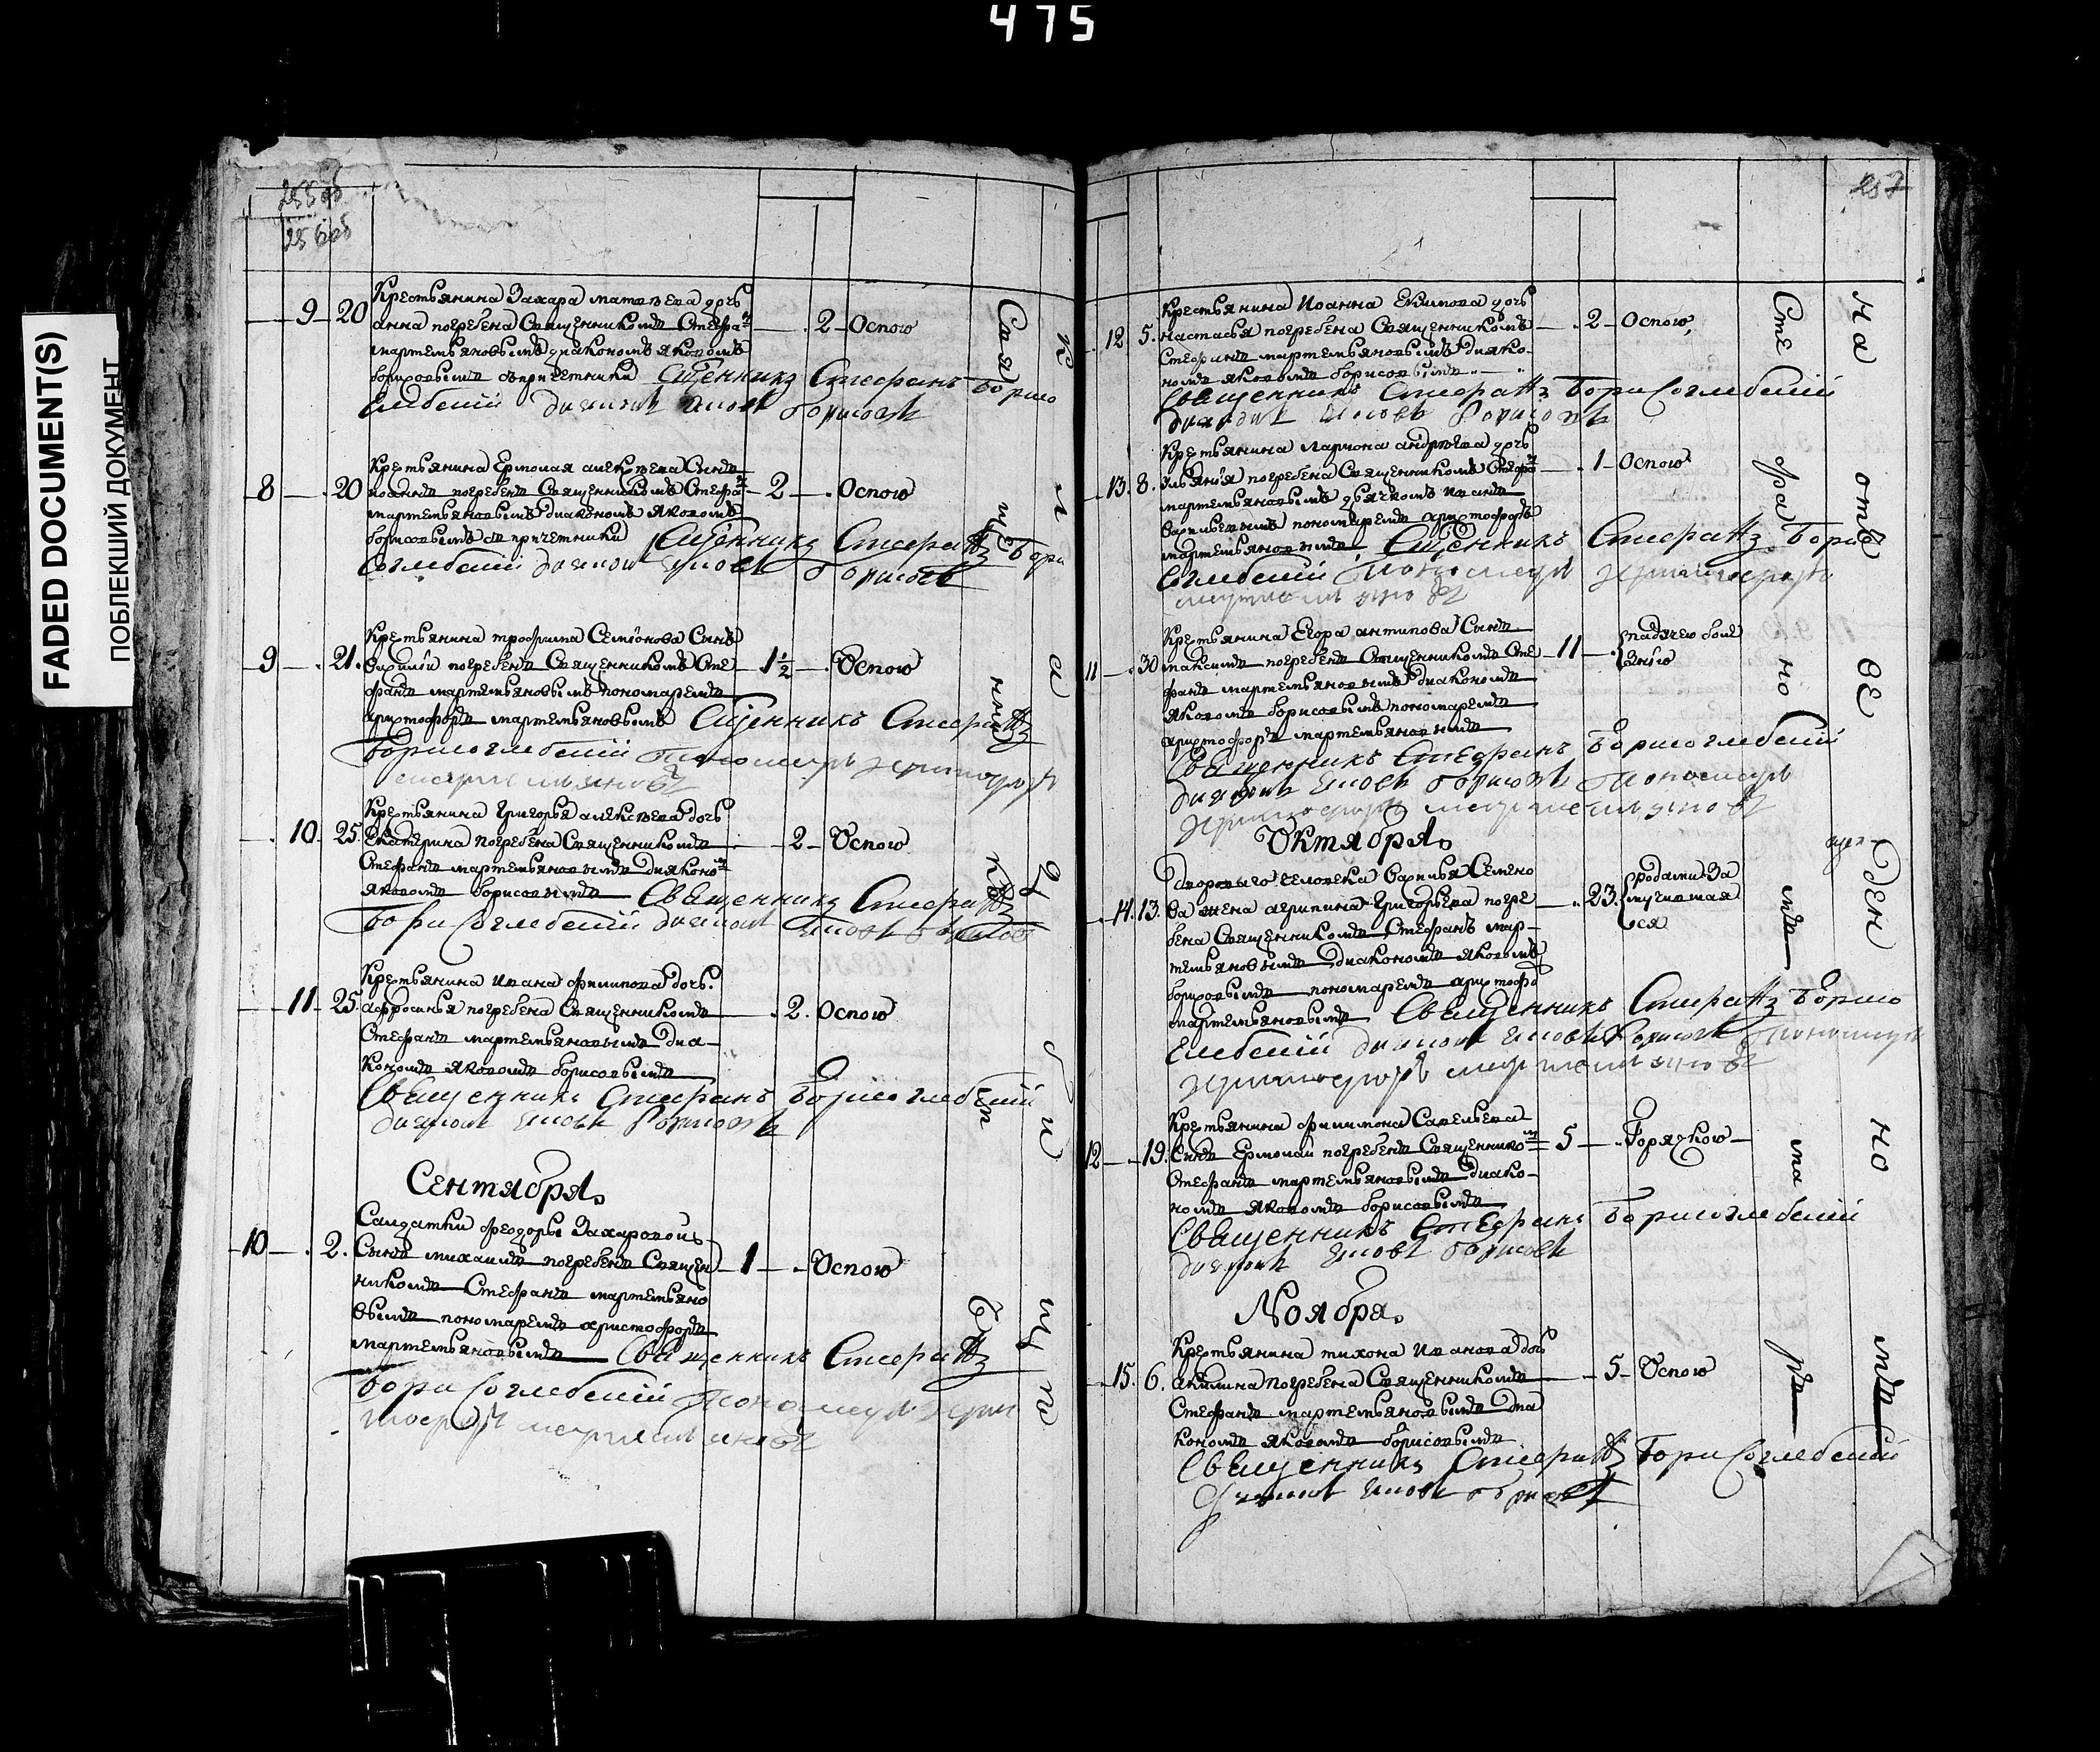 475
FADED DOCUMENT(S)
ПОБЛЕКШИЙ ДОКУМЕНТ
9 20 Крестьянина Захара матвѣева дочь
анна погребена Священникомъ Стефа 2 Оспою
мартемьяновымъ диакономъ яковомъ
борисовымъ съ причетники Сщенникъ Стефанъ Борисо
Глебский диаконъ Борисовъ
8 20 Крестьянина Ермолая алексѣева Сынъ
иоаннъ погребенъ Священникомъ Стефа 2 Оспою
мартемьяновымъ диакономъ яковомъ
борисовымъ съ причетники Сщенникъ Стефанъ Бори
Соглебский диаконъ Борисовъ
9 21 Крестьянина трофима Семіонова Сынъ
Василій погребенъ Священникомъ Сте 1 1/2 Оспою
фаномъ мартемьяновымъ пономаремъ
христофоромъ мартемьяновымъ Сщенникъ Стефанъ
Борисоглебский Пономарь христофоръ
мартемьяновъ
10 25 Крестьянина Григорья алексѣева дочь
Екатерина погребена Священникомъ 2 Оспою
Стефаномъ мартемьяновымъ диаконо
яковомъ борисовымъ Священникъ Стефанъ
Борисоглебский диаконъ
11 25 Крестьянина Ивана филипова дочь
афросинья погребена Священникомъ 2 Оспою
Стефаномъ мартемьяновымъ диа-
кономъ яковомъ борисовымъ
Священникъ Стефанъ Борисоглебский
диаконъ Борисовъ
Сентября
Салдатки феодоры Захаровой
10 2 Сынъ михаилъ погребенъ Священ 1 Оспою
никомъ Стефаномъ мартемьяно
вымъ пономаремъ христофоромъ
мартемьяновымъ Священникъ Стефанъ
Борисоглебский Пономарь Хрис
тофоръ мартемьяновъ
Крестьянина Иоанна Екимова дочь
12 5 настасья погребена Священникомъ 2 Оспою
Стефаномъ мартемьяновымъ диако-
номъ яковомъ борисовымъ
Священникъ Стефанъ Борисоглебский
диаконъ Борисовъ
Крестьянина лариона андрѣева дочь
13 8 погребена Священникомъ Стефа 1 Оспою
мартемьяновымъ дьячкомъ Иваномъ
Васильевымъ пономаремъ христофоромъ
мартемьяновымъ Сщенникъ Стефанъ Бори
Соглебский Пономарь христофоръ
мартемьяновъ
Крестьянина Егора антипова Сынъ
11 30 максимъ погребенъ Священникомъ Сте 11 падячею боле
фаномъ мартемьяновымъ диакономъ знію
яковомъ борисовымъ пономаремъ
христофоромъ мартемьяновымъ
Священникъ Стефанъ Борисоглебский
диаконъ Борисовъ Пономарь
христофоръ мартемьяновъ
Октября
Двороваго человека Василья Семено
14 13 ва жена агрипина Григорьева погре 23 родами за
бена Священникомъ Стефаномъ мар- мучившая
темьяновымъ диакономъ яковомъ ся
борисовымъ пономаремъ христофо
мартемьяновымъ Священникъ Стефанъ Борисо
Глебский диаконъ Борисовъ Пономарь
христофоръ мартемьяновъ
Крестьянина филимона Савельева
12 19 Сынъ Ермолай погребенъ Священнико 5 Горячкою
Стефаномъ мартемьяновымъ диако-
номъ яковомъ борисовымъ
Священникъ Стефанъ Борисоглебский
диаконъ Борисовъ
Ноября
Крестьянина тихона Иванова дочь
15 6 акилина погребена Священникомъ 5 Оспою
Стефаномъ мартемьяновымъ диа
кономъ яковомъ борисовымъ
Священникъ Стефанъ Борисоглебский
диаконъ Борисовъ
Священникъ
Стефанъ